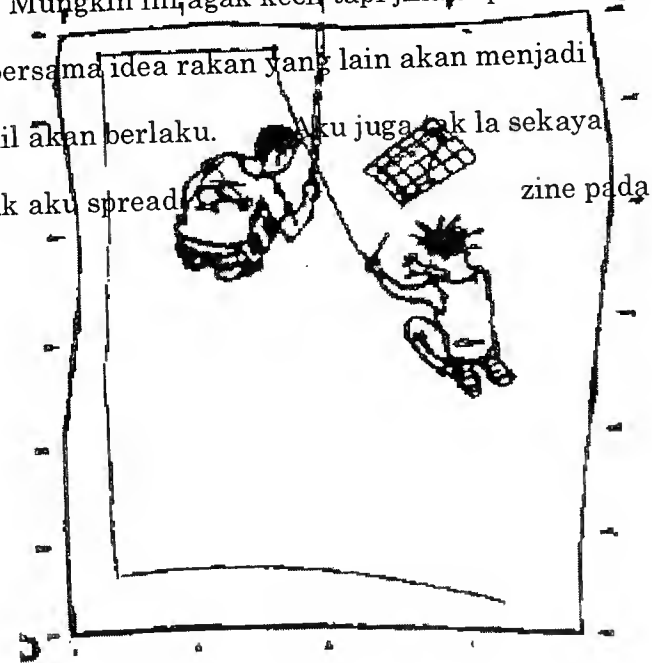 Mungkin ini agak kecil tapi
bersama idea rakan yang lain akan menjadi
il akan berlaku. Aku juga tak la sekaya
k aku spread zine pada